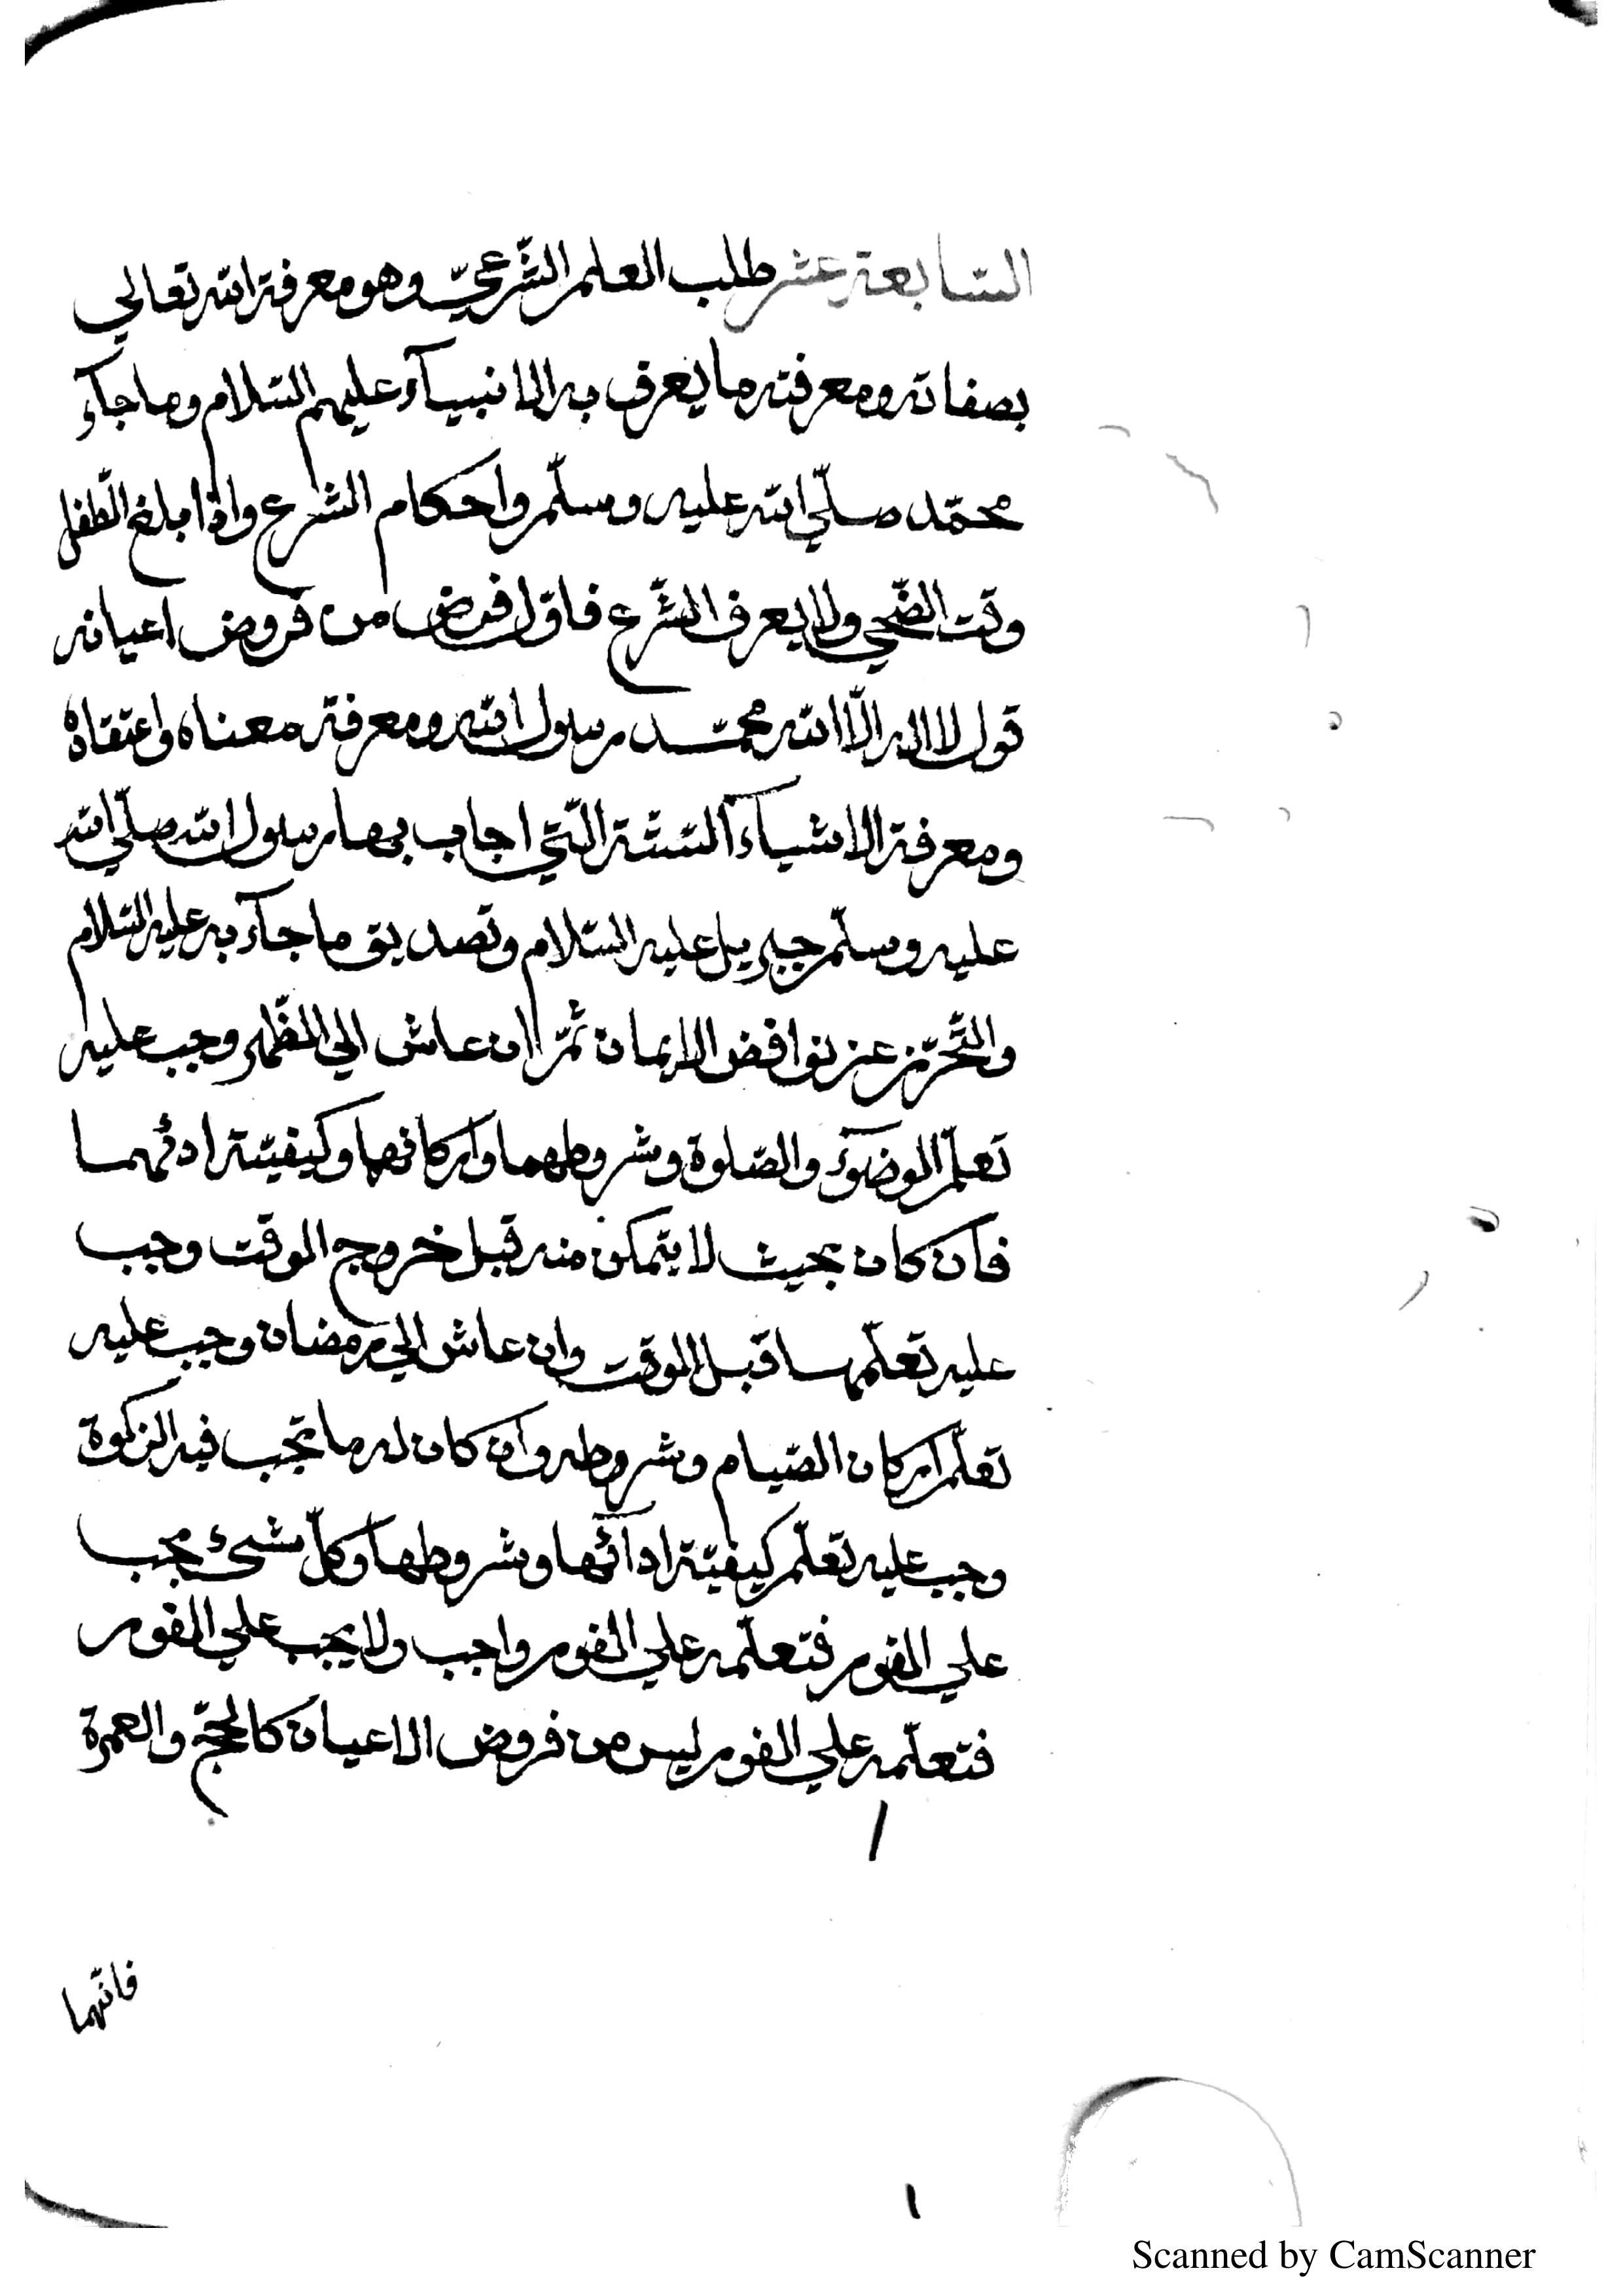 السّابعة عشر طلب العلم الشّرعيّ وهو معرفة الله تعالي
بصفاته ومعرفته ما يعرف به الانبيآء عليهم السّلام وما جآء
محمّد صلّي الله عليه وسلّم واحكام الشّرع واذا بلغ الطّفل
وقت الضّحي ولا يعرف الشّرع فاوّل فرض من فروض اعيانه
قول لا اله الّا الله محمّد رسول الله ومعرفة معناه واعتقاده
ومعرفة الاشيآء السّتّة الّتي اجاب بها رسول الله صلّي الله
عليه وسلّم جبريل عليه السّلام وتصديق ما جآء به عليه السّلام
والتّحرّز عن نواقض الايمان ثمّ ان عاش الي الظّهر وجب عليه
تعلّم الوضوء والصّلوة وشروطهما واركانهما وكيفيّة ادئهما
فان كان بحيث لا يتمكن منه قبل خروج الوقت وجب
عليه تعلّمهما قبل الوقت وان عاش الي رمضان وجب عليه
تعلّم اركان الصّيام وشروطه وان كان له ما تجب فيه الزكوة
وجب عليه تعلّم كيفيّة ادآئها وشروطها وكلّ شيئ يجب
علي الفور فتعلّمه علي الفور واجب ولا يجب علي الفور
فتعلّمه علي الفور ليس من فروض الاعيان كالحجّ والعمرة
فانّهما
Scanned by CamScanner